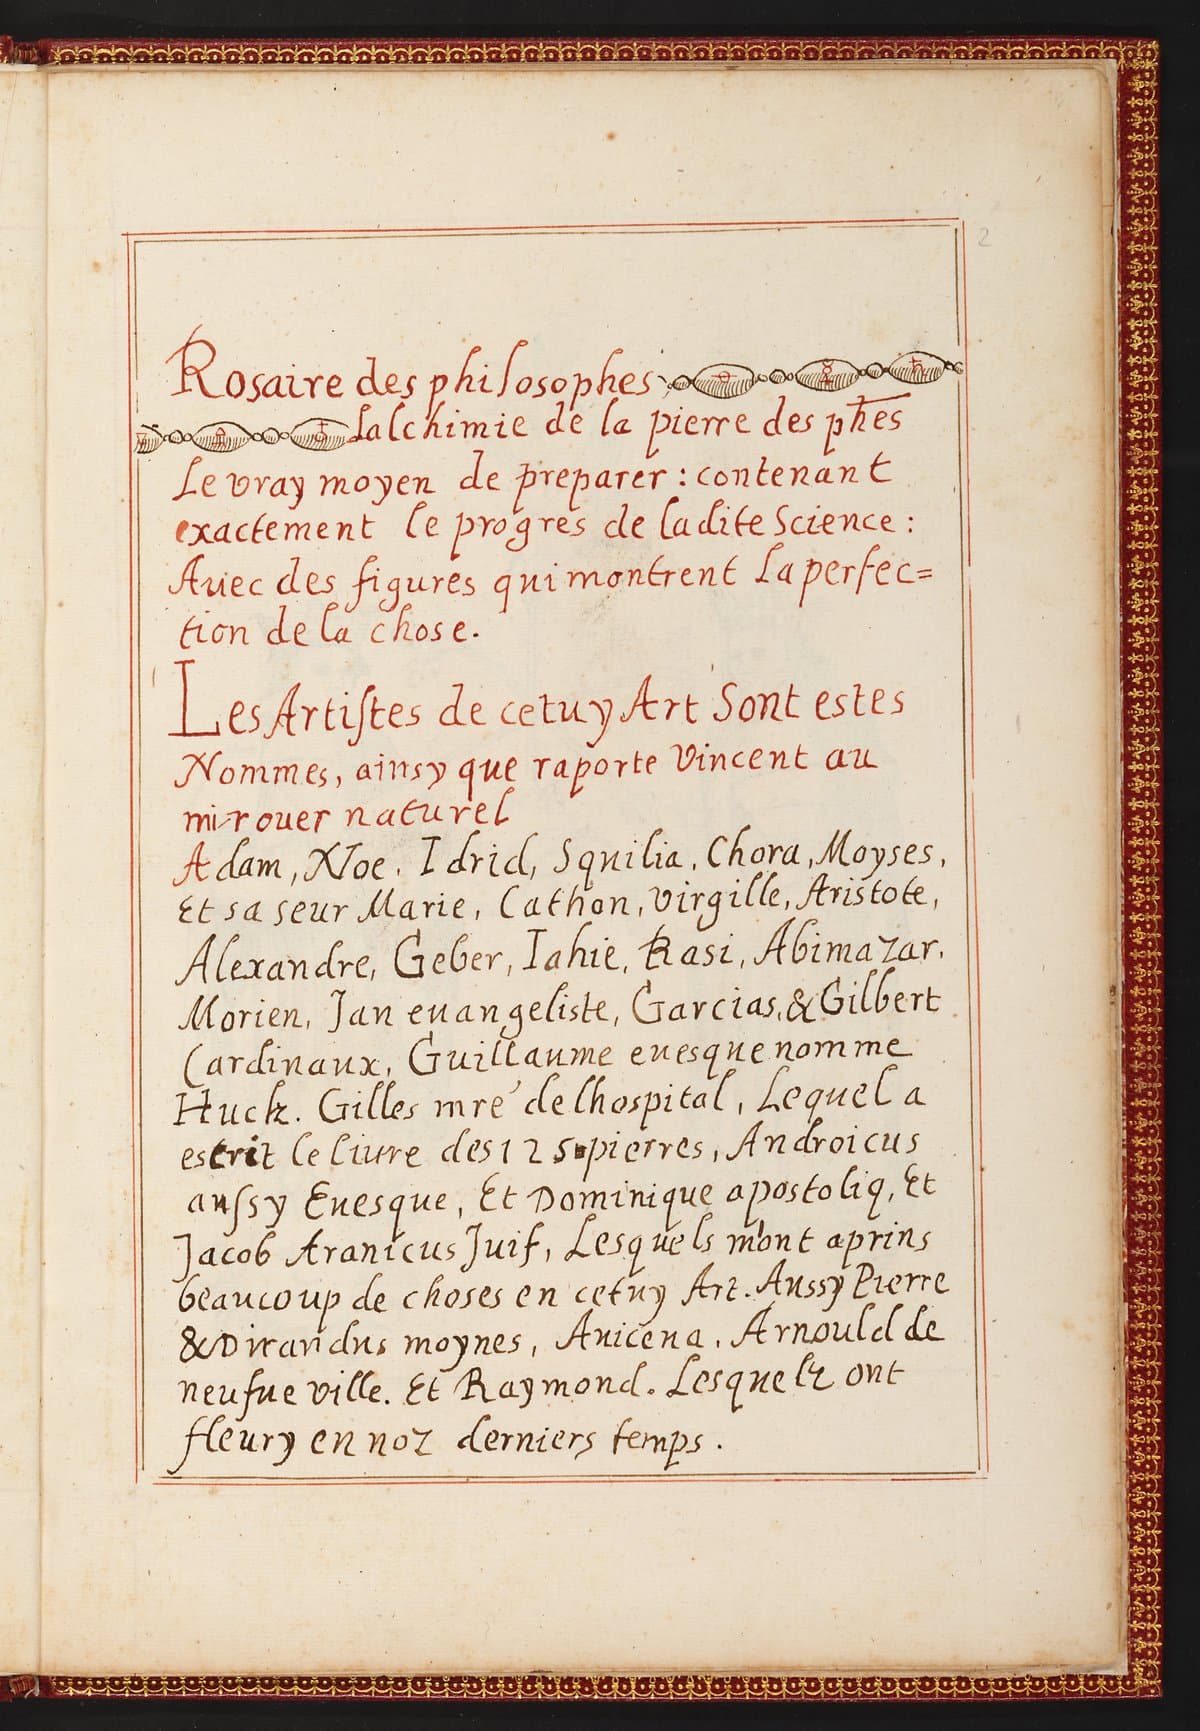 2
Rosaire des philosophes
Lalchimie de la pierre des phẽs
Le vray moyen de preparer : contenant
exactement le progres de ladite Science :
Auec des figures qui montrent La perfec=
tion de la chose.
Les Artiſtes de cetuy Art Sont estes
Nommes, ainsy que raporte Vincent au
mirouer naturel
Adam, Noe. Idrid, Squilia, Chora, Moyses,
Et sa seur Marie, Cathon, virgille, Aristote,
Alexandre, Geber, Iahie, Rasi, Abimazar.
Morien, Jan euangeliste, Garcias, & Gilbert
Cardinaux, Guillaume euesque nomme
Huck. Gilles mre de lhospital, Lequel a
escrit le liure des 125 pierres, Androicus
auſsy Euesque, Et Dominique apostoliq, Et
Jacob Aranicus Juif, Lesquels m'ont aprins
beaucoup de choses en cetuy Art. Aussy Pierre
& Durandus moynes, Auicena, Arnould de
neufue ville. Et Raymond. Lesquelz ont
fleury en noz derniers temps.